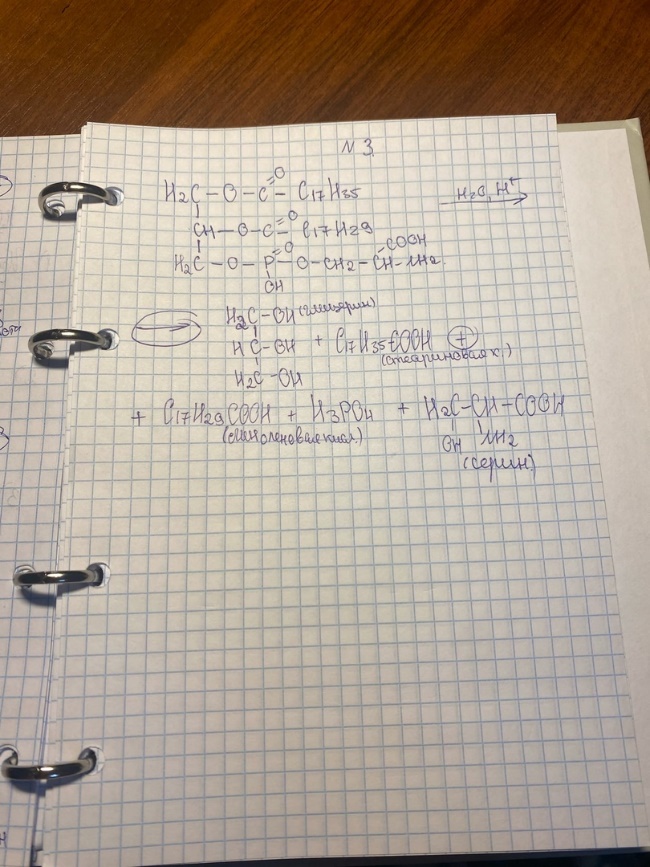 № 3
H2C – O – C =O – C17H35 H2O, H+ →
CH – O – C =O C17H29
H2C – O – P =O – O – CH2 – CH – NH2
COOH
OH
→ H2C – OH (глицерин)
HC – OH + C17H35COOH +
(стеариновая к.)
H2C – OH
+ C17H29COOH + H3PO4 + H2C – CH – COOH
(линоленовая кисл) OH NH2
(серин)